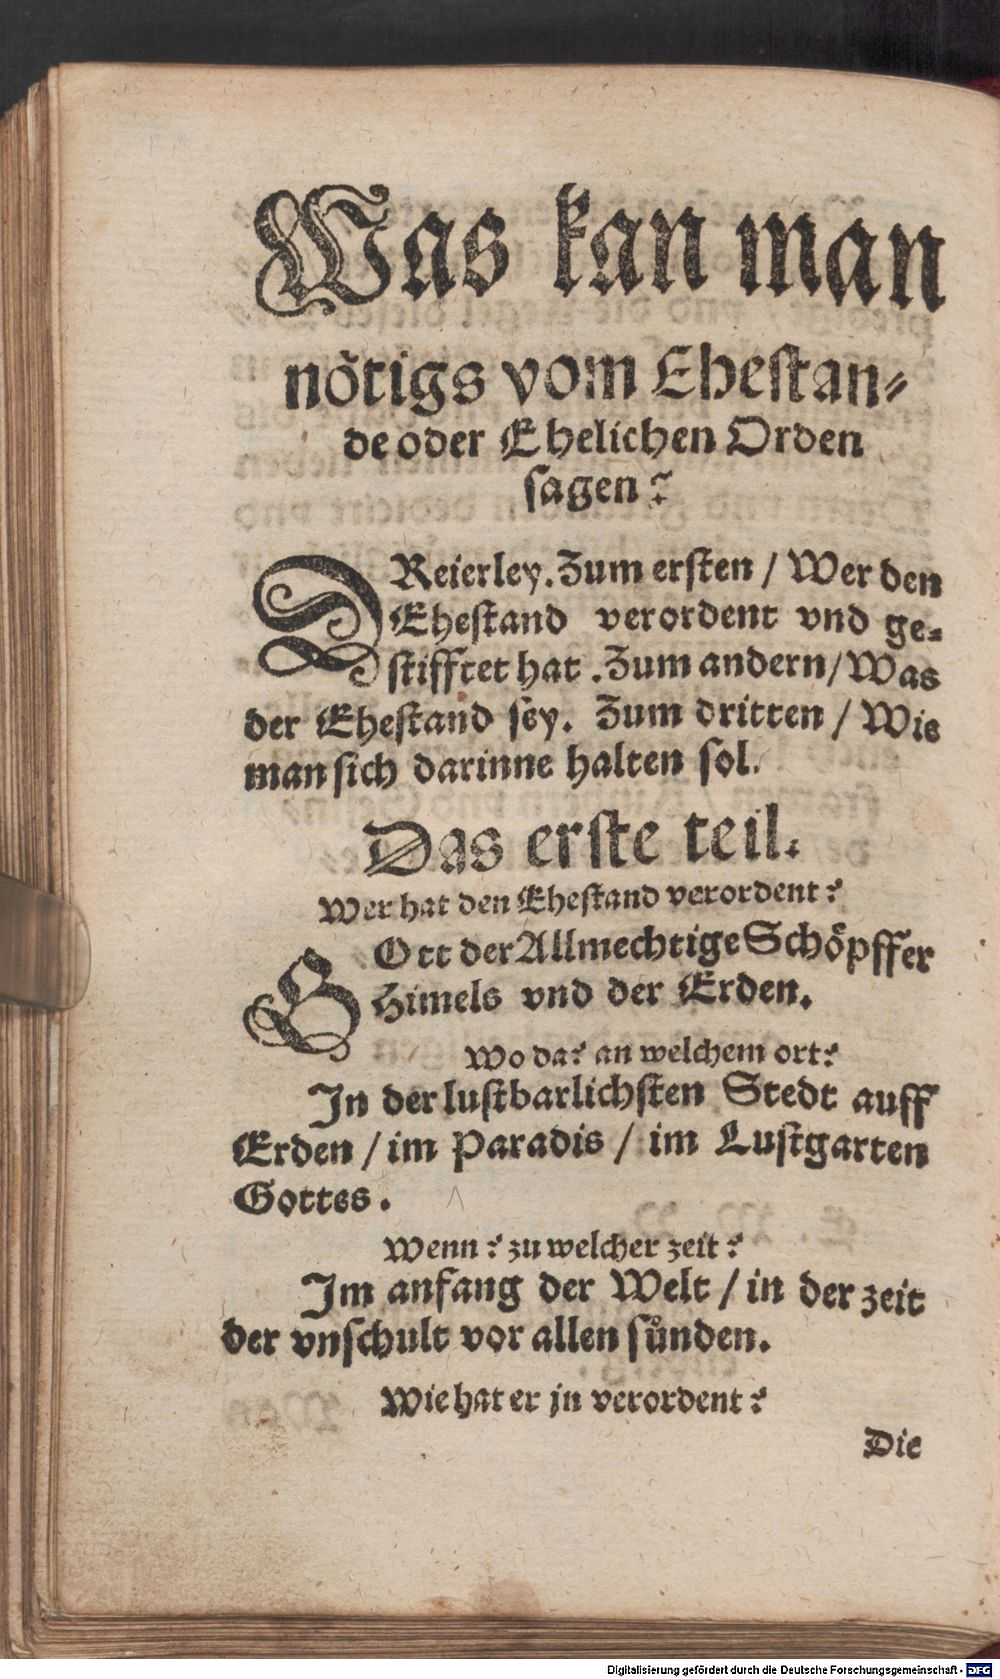 Was kan man
nötigs vom Ehestan-
de oder Ehelichen Orden
sagen?
DReierley. Zum ersten / Wer den
Ehestand verordent vnd ge-
stifftet hat. Zum andern / Was
der Ehestand sey. Zum dritten / Wie
man sich darinne halten sol.
Das erste teil.
Wer hat den Ehestand verordent?
GOtt der Allmechtige Schöpffer
Himels vnd der Erden.
Wo da? an welchem ort?
In der lustbarlichsten Stedt auff
Erden / im Paradis / im Lustgarten
Gottes.
Wenn? zu welcher zeit?
Im anfang der Welt / in der zeit
der vnschult vor allen sůnden.
Wie hat er jn verordent?
Die
Digitalisierung gefördert durch die Deutsche Forschungsgemeinschaft - DFG